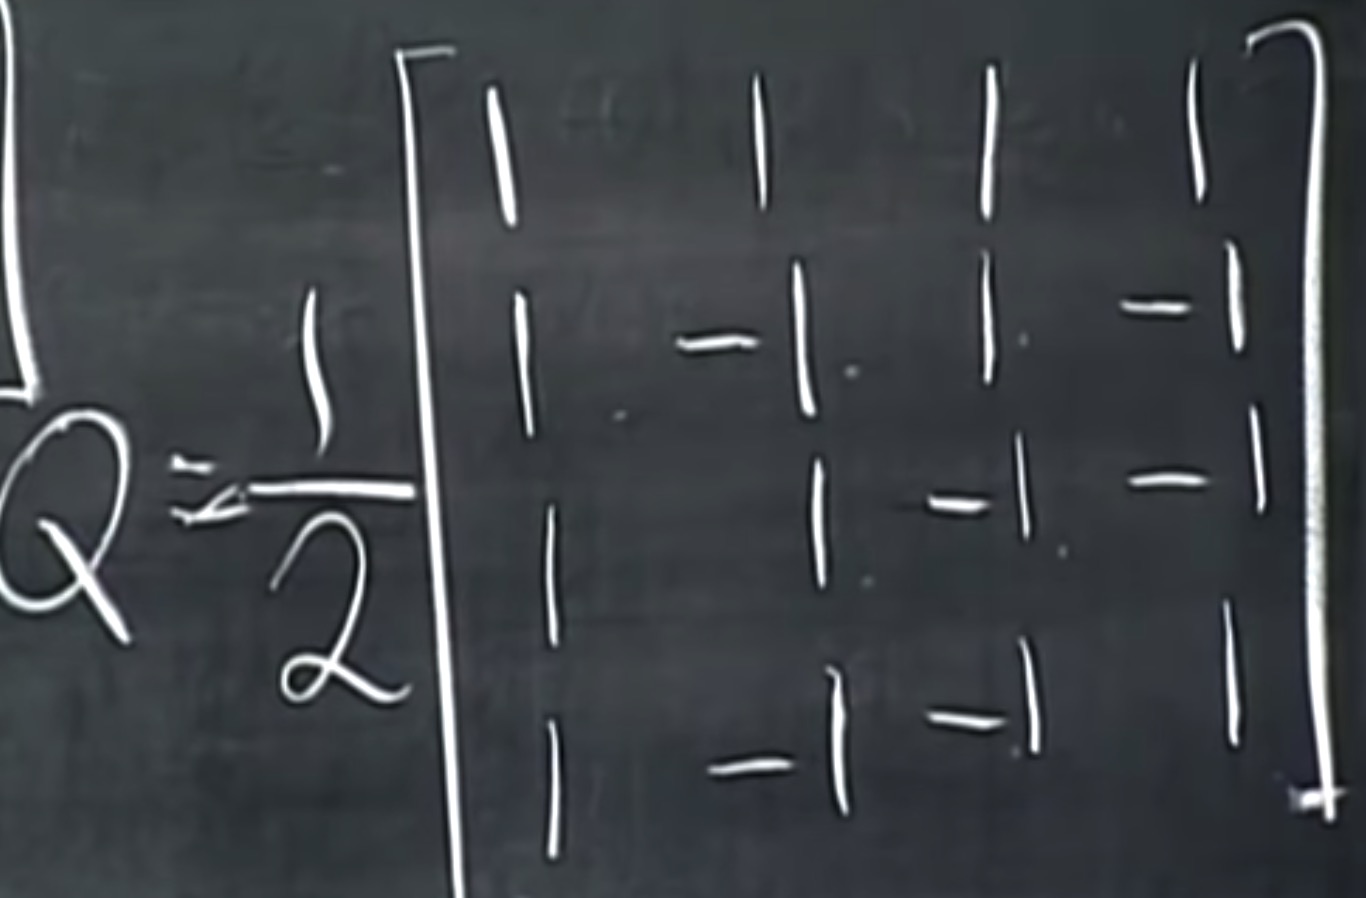 Q = 1/2 [
1 1 1 1
1 -1 1 -1
1 1 -1 -1
1 -1 -1 1
]